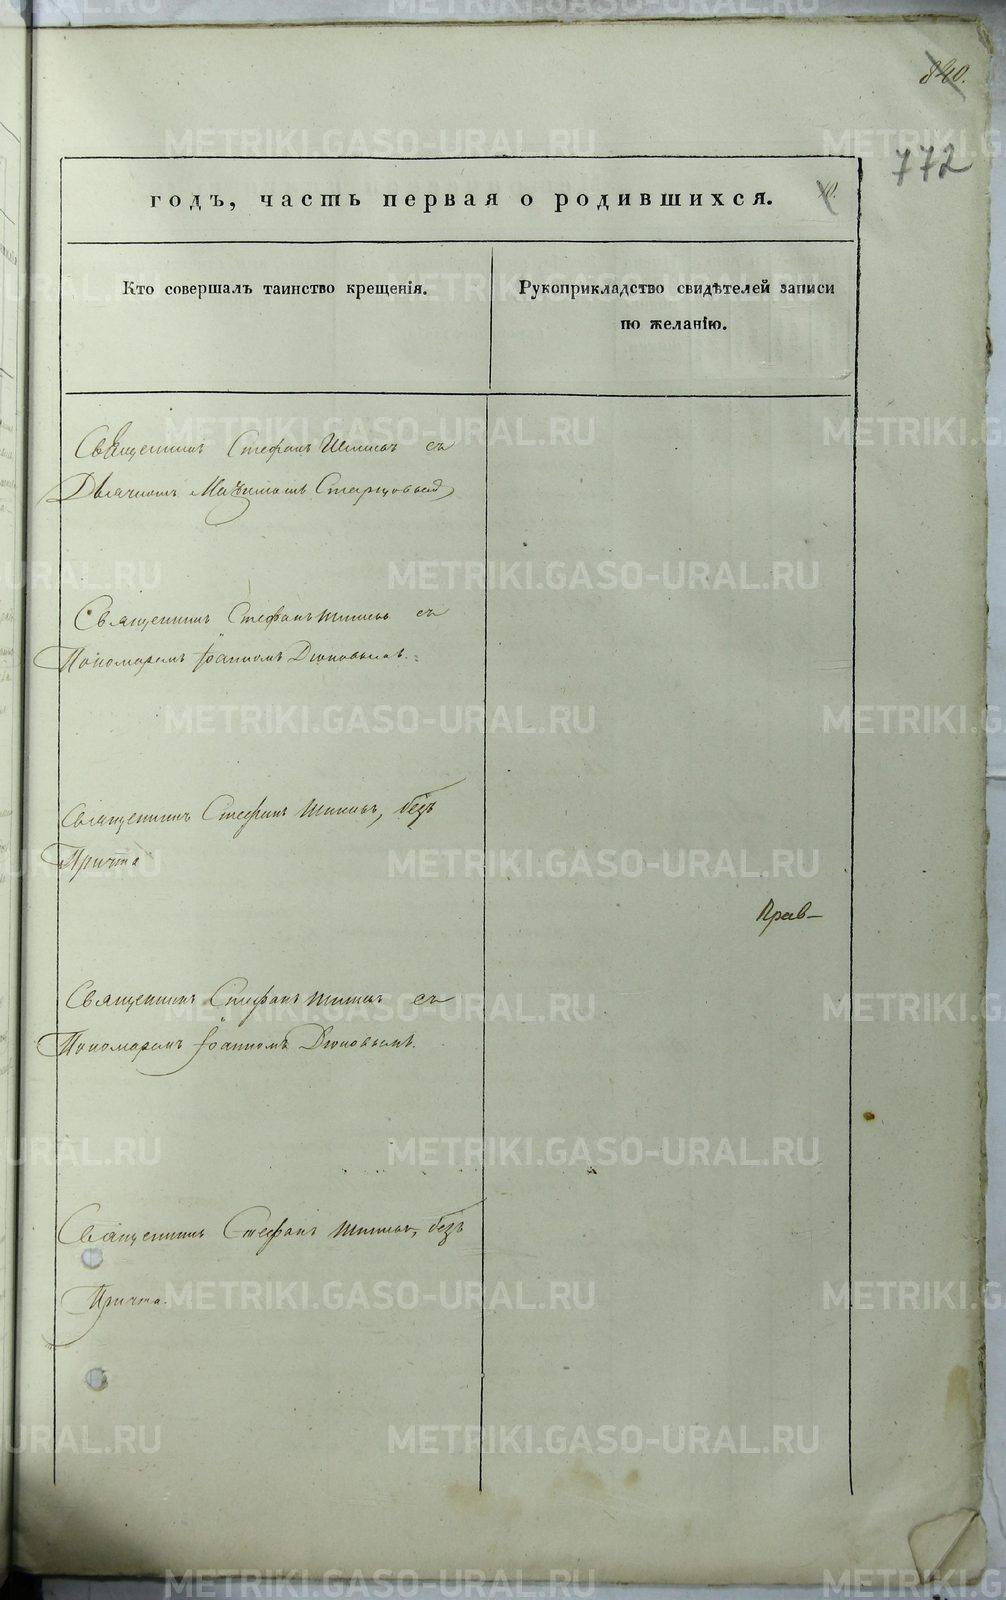 840.
772
годъ, часть первая о родившихся.
10.
Кто совершалъ таинство крещенія.
Рукоприкладство свидѣтелей записи
по желанію.
Священникъ Стефанъ Шишевъ съ
Дьячкомъ Максимомъ Старцовымъ
Священникъ Стефанъ Шишевъ съ
Пономаремъ Іоанномъ Дюповымъ.
Священникъ Стефанъ Шишевъ, безъ
Причта
Прав-
Священникъ Стефанъ Шишевъ съ
Пономаремъ Іоанномъ Дюповымъ.
Священникъ Стефанъ Шишевъ, безъ
Причта.
METRIKI.GASO-URAL.RU